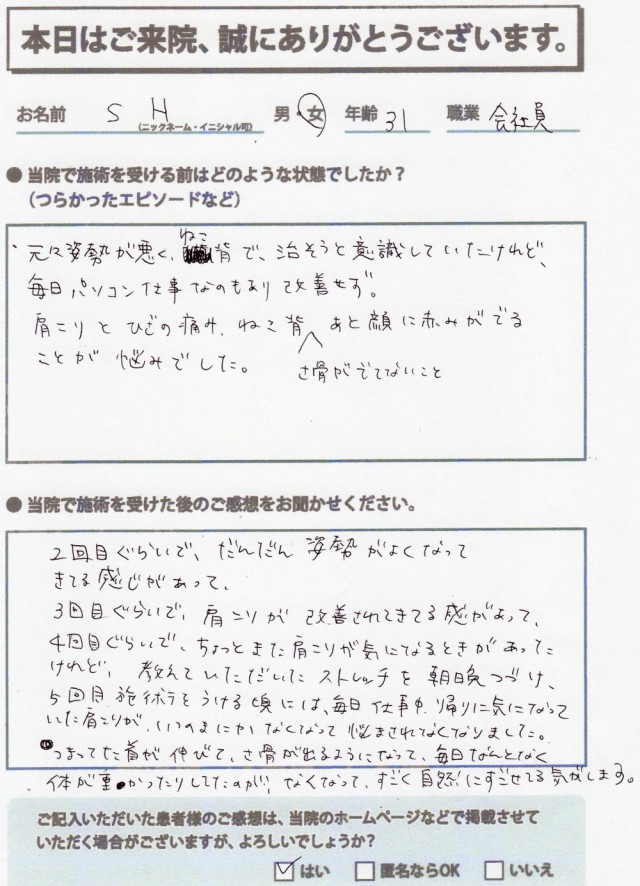 本日はご来院、誠にありがとうございます。
お名前 S H (ニックネーム・イニシャル可) 男・女 年齢 31 職業 会社員
● 当院で施術を受ける前はどのような状態でしたか？
（つらかったエピソードなど）
元々姿勢が悪く、ねこ背で、治そうと意識していたけれど、
毎日パソコン仕事なのもあり改善せず。
肩こりとひざの痛み、ねこ背 あと顔に赤みがでる
ことが悩みでした。 さ骨がでてないこと
● 当院で施術を受けた後のご感想をお聞かせください。
2回目ぐらいで、だんだん姿勢がよくなって
きてる感じがあって、
3回目ぐらいで、肩こりが改善されてきてる感があって、
4回目ぐらいで、ちょっとまた肩こりが気になるときがあった
けれど、教えていただいたストレッチを朝晩つづけ、
5回目施術をうける頃には、毎日仕事中、帰りに気になって
いた肩こりが、いつのまにかなくなって悩まされなくなりました。
つまってた首が伸びて、さ骨が出るようになって、毎日なんとなく
体が重かったりしてたのが、なくなって、すごく自然にすごせてる気がします。
ご記入いただいた患者様のご感想は、当院のホームページなどで掲載させて
いただく場合がございますが、よろしいでしょうか？
はい 匿名ならOK いいえ